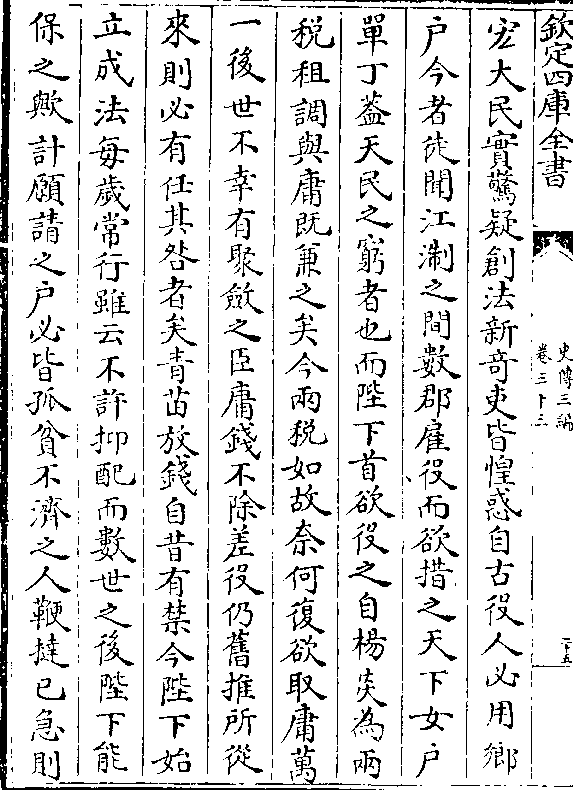 欽定四庫全書
史傳三編
卷三十三
二十五
宏大民實驚疑創法新奇吏皆惶惑自古役人必用鄉
户今者徒聞江淛之間數郡雇役而欲措之天下女户
單丁葢天民之窮者也而陛下首欲役之自楊炎為兩
税租調與庸既兼之矣今兩税如故奈何復欲取庸萬
一後世不幸有聚斂之臣庸錢不除差役仍舊推所從
來則必有任其咎者矣青苗放錢自昔有禁今陛下始
立成法毎歲常行雖云不許抑配而數世之後陛下能
保之歟計願請之户必皆孤貧不濟之人鞭撻已急則